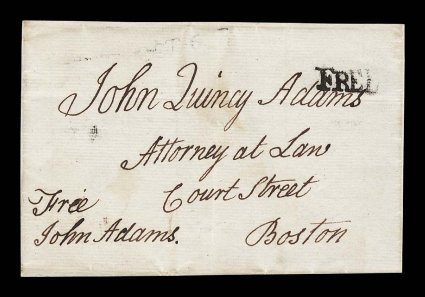 John Quincy Adams
FREE
Attorney at Law
Court Street
Boston
Free
John Adams.